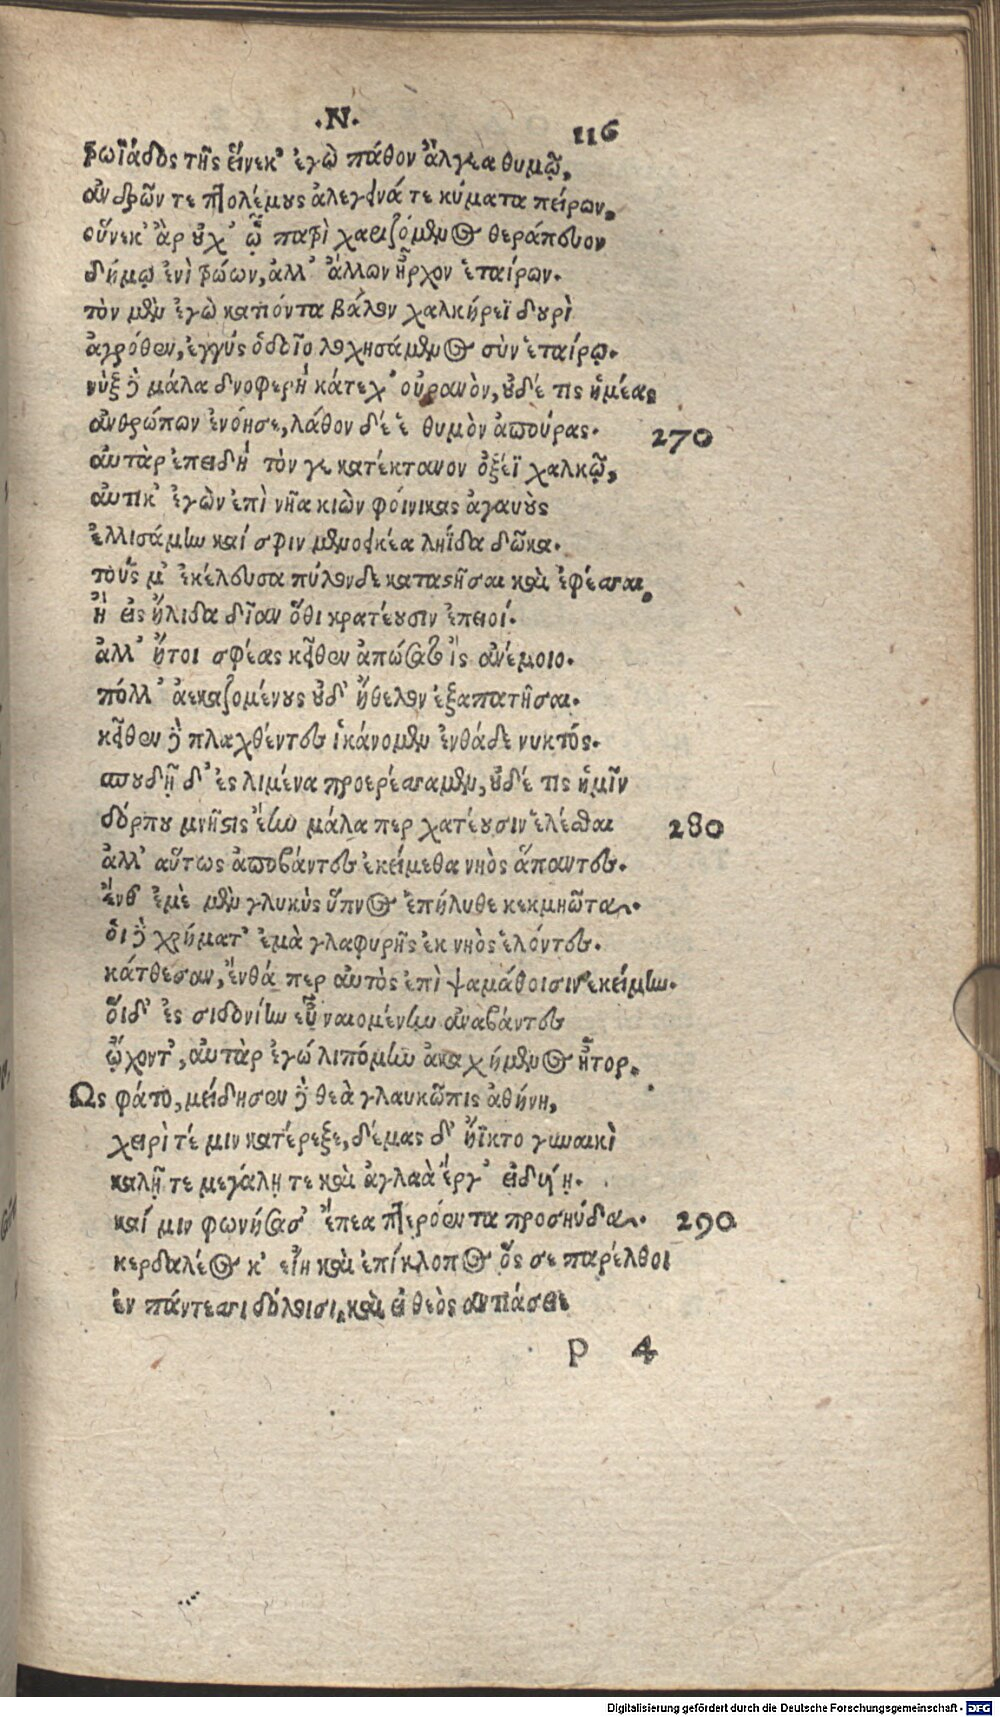 .Ν.
116
τρωϊάδος τῆς εἵνεκ᾽ ἐγὼ πάθον ἄλγεα θυμῷ,
ἀνδρῶν τε πτολέμους ἀλεγεινά τε κύματα πείρων,
οὕνεκ᾽ ἂρ οὐχ᾽ ᾧ πατρὶ χαριζόμενος θεράπευον
δήμῳ ἐνὶ τρώων, ἀλλ᾽ ἄλλων ἦρχον ἑταίρων.
τὸν μὲν ἐγὼ κατιόντα βάλον χαλκήρεϊ δουρὶ
ἀγρόθεν, ἐγγύς ὁδοῖο λοχησάμενος σὺν ἑταίρῳ.
νὺξ δὲ μάλα δνοφερὴ κάτεχ᾽ οὐρανὸν, οὐδέ τις ἡμέας
ἀνθρώπων ἐνόησε, λάθον δέ ἑ θυμὸν ἀπούρας. 270
αὐτὰρ ἐπειδὴ τὸν γε κατέκτανον ὀξέϊ χαλκῷ,
αὐτίκ᾽ ἐγὼν ἐπὶ νῆα κιὼν φοίνικας ἀγαυοὺς
ἐλλισάμην καί σφιν μενοεικέα ληΐδα δῶκα.
τούς μ᾽ ἐκέλευσα πύλονδε καταστῆσαι καὶ ἐφέσσαι,
ἢ εἰς ἤλιδα δῖαν ὅθι κρατέουσιν ἐπειοί.
ἀλλ᾽ ἤτοι σφέας κεῖθεν ἀπώσατο ἲς ἀνέμοιο.
πόλλ᾽ ἀεκαζομένους οὐδ᾽ ἤθελον ἐξαπατῆσαι.
κεῖθεν δὲ πλαχθέντες ἱκάνομεν ἐνθάδε νυκτός.
σπουδῇ δ᾽ ἐς λιμένα προερέσσαμεν, οὐδέ τις ἡμῖν
δόρπου μνῆστις ἔην μάλα περ χατέουσιν ἑλέσθαι 280
ἀλλ᾽ αὕτως ἀποβάντες ἐκείμεθα νηὸς ἅπαντες.
ἔνθ᾽ ἐμὲ μὲν γλυκὺς ὕπνος ἐπήλυθε κεκμηῶτα.
ὁι δὲ χρήματ᾽ ἐμὰ γλαφυρῆς ἐκ νηὸς ἑλόντες.
κάτθεσαν, ἔνθά περ αὐτὸς ἐπὶ ψαμάθοισιν ἐκείμην.
ὅιδ᾽ ἐς σιδονίην εὖ ναιομένην ἀναβάντες
ᾤχοντ᾽, αὐτὰρ ἐγώ λιπόμην ἀκαχήμενος ἦτορ.
Ως φάτο, μείδησεν δὲ θεὰ γλαυκῶπις ἀθήνη,
χειρὶ τέ μιν κατέρεξε, δέμας δ᾽ ἤϊκτο γυναικὶ
καλῇ τε μεγάλῃ τε καὶ ἀγλαὰ ἔργ᾽ εἰδυίῃ.
καί μιν φωνήσασ᾽ ἔπεα πτερόεντα προσηύδα. 290
κερδαλέος κ᾽ εἴη καὶ ἐπίκλοπος ὅς σε παρέλθοι
ἐν πάντεσσι δόλοισι, καὶ εἰ θεὸς ἀντιάσειε
p 4
Digitalisierung gefördert durch die Deutsche Forschungsgemeinschaft - DFG